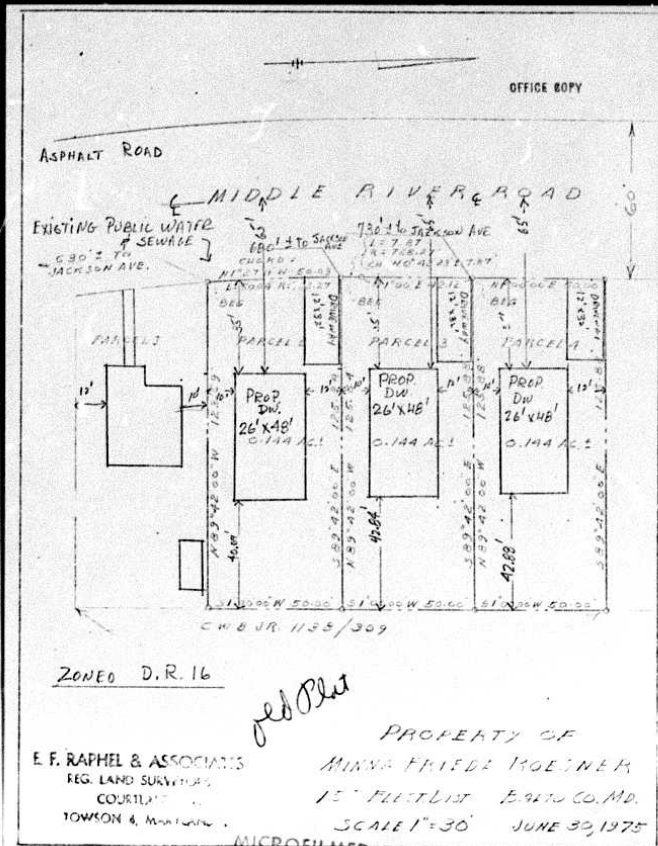 OFFICE COPY
ASPHALT ROAD
60'
MIDDLE RIVER ROAD
EXISTING PUBLIC WATER
& SEWAGE
690' ± TO
JACKSON AVE.
62'
680' ± TO JACKSON
AVE
CHORD =
730' ± TO JACKSON AVE
L = 7.87
65'
BEG
BEG
BEG
DRIVEWAY
12'x32'
DRIVEWAY
DRIVEWAY
PARCEL
35'
PARCEL
35'
PARCEL 3
PARCEL 4
12'
10'
10'
PROP.
DW.
26'X48'
0.144 AC ±
12'
10'
PROP.
DW.
26'X48'
0.144 AC ±
12'
10'
PROP.
DW
26'X48'
0.144 AC ±
12'
N 89° 42' 00" W
S 89° 42' 00" E
N 89° 42' 00" W 125.88'
S 89° 42' 00" E 125.88'
N 89° 42' 00" W 125.88'
S 89° 42' 00" E
42.84'
42.88'
S 1° 00' 00" W 50.00'
S 1° 00' 00" W 50.00'
S 1° 00' 00" W 50.00'
C W B JR. 1138/309
ZONED D.R. 16
old Plat
E. F. RAPHEL & ASSOCIATES
REG. LAND SURVEYORS
TOWSON 4, MARYLAND
PROPERTY OF
MINNA FRIEDE ROESNER
15TH ELECT. DIST BALTO CO. MD.
SCALE 1" = 30' JUNE 30, 1975
MICROFILMED